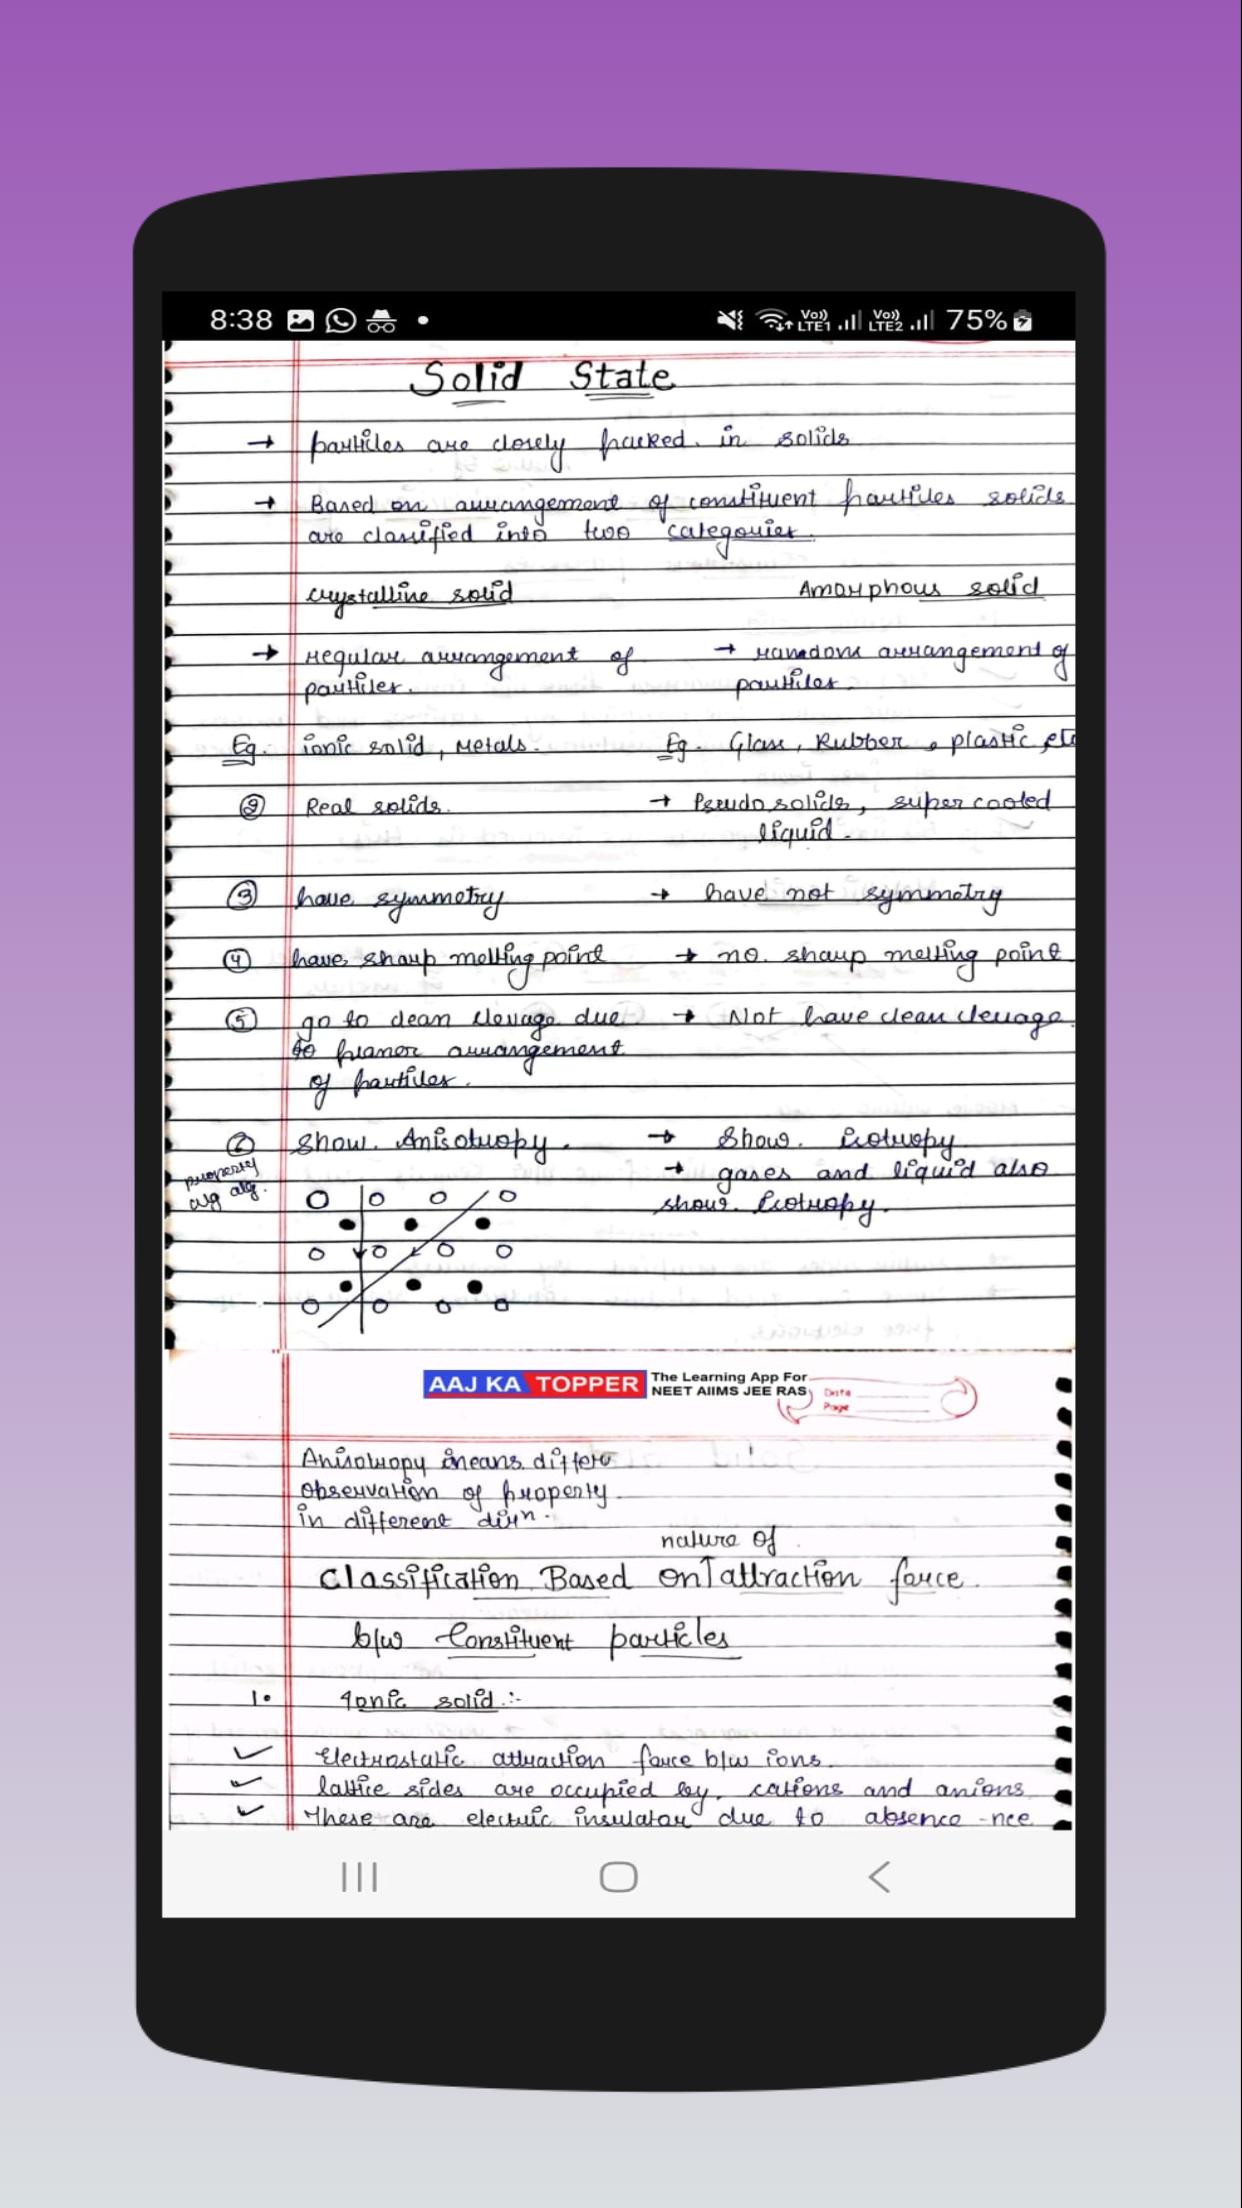 8:38
Vo)) LTE1 Vo)) LTE2 75%
Solid State
→ particles are closely packed. in solids
→ Based on arrangement of constituent particles solids
are classified into two categories.
crystalline solid Amorphous solid
→ regular arrangement of → random arrangement of
particles. particles.
Eg. ionic solid, Metals. Eg. Glass, Rubber, plastic, etc
② Real solids. → Pseudo solids, super cooled
liquid.
③ have symmetry → have not symmetry
④ have sharp melting point → no. sharp melting point.
⑤ go to clean clevage due → Not have clean clevage.
to arrangement
of particles.
show. Anisotropy. → Show. Isotropy.
property → gases and liquid also
show. Isotropy.
AAJ KA TOPPER The Learning App For
NEET AIIMS JEE RAS
Date
Page
Anisotropy means.
observation of property.
in different dirn.
nature of
Classification Based on attraction force.
b/w Constituent particles
1. Ionic solid :-
✓ Electrostatic attraction force b/w ions.
✓ lattice sides are occupied by. cations and anions
✓ These are electric insulator due to absence -nce